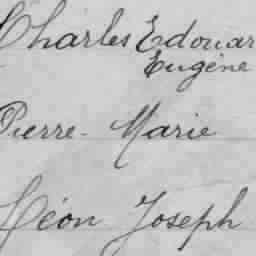 Charles Edouar
Eugène
Pierre-Marie
Léon Joseph